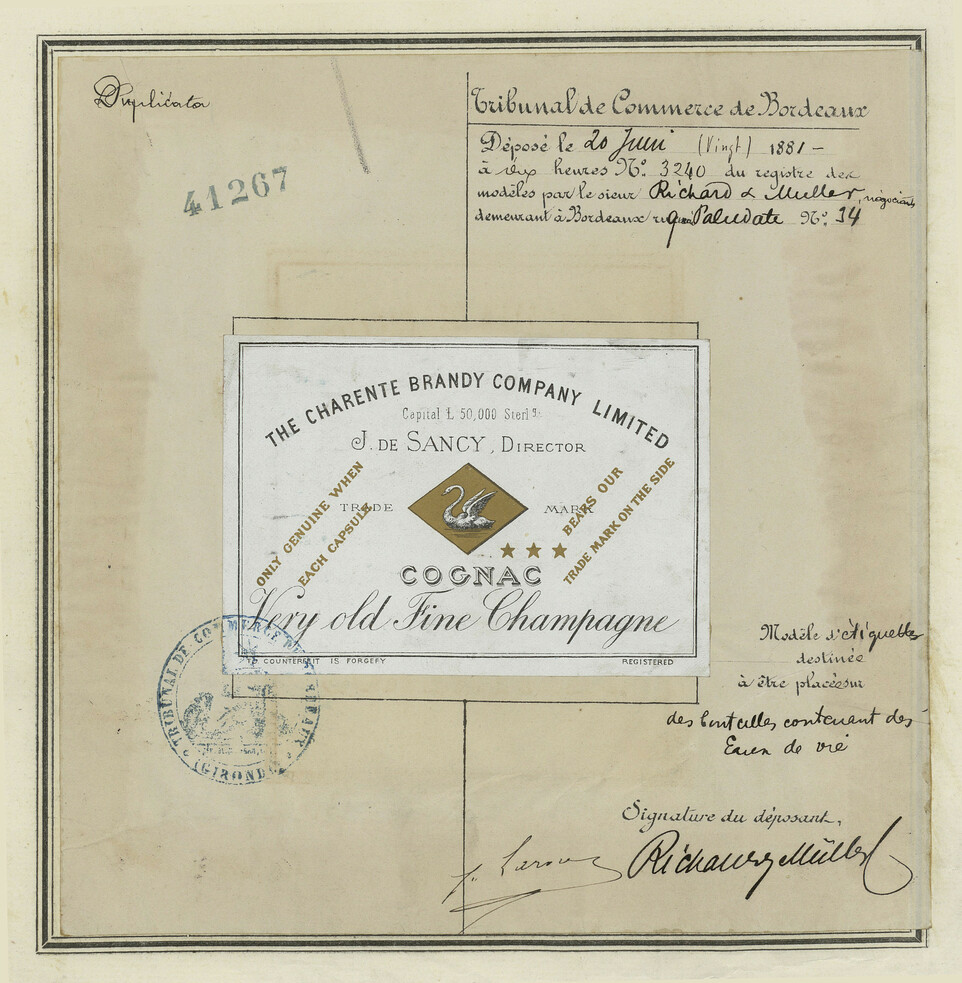 Duplicata
41267
Tribunal de Commerce de Bordeaux
Déposé le 20 Juin (Vingt) 1881 –
à dix heures N° 3240 du registre des
modèles par le sieur Richard & Muller, négociants
demeurant à Bordeaux Paludate N° 14
THE CHARENTE BRANDY COMPANY LIMITED
Capital £ 50,000 Sterlg
J. DE SANCY, DIRECTOR
ONLY GENUINE WHEN
EACH CAPSULE
TRADE MARK
BEARS OUR
TRADE MARK ON THE SIDE
★ ★ ★
COGNAC
Very old Fine Champagne
TO COUNTERFEIT IS FORGEFY
REGISTERED
TRIBUNAL DE COMMERCE DE BORDEAUX
(GIRONDE)
Modèle d'étiquettes
destinée
à être placée sur
des bouteilles contenant des
Eaux de vie
Signature du déposant,
Richard & Müller